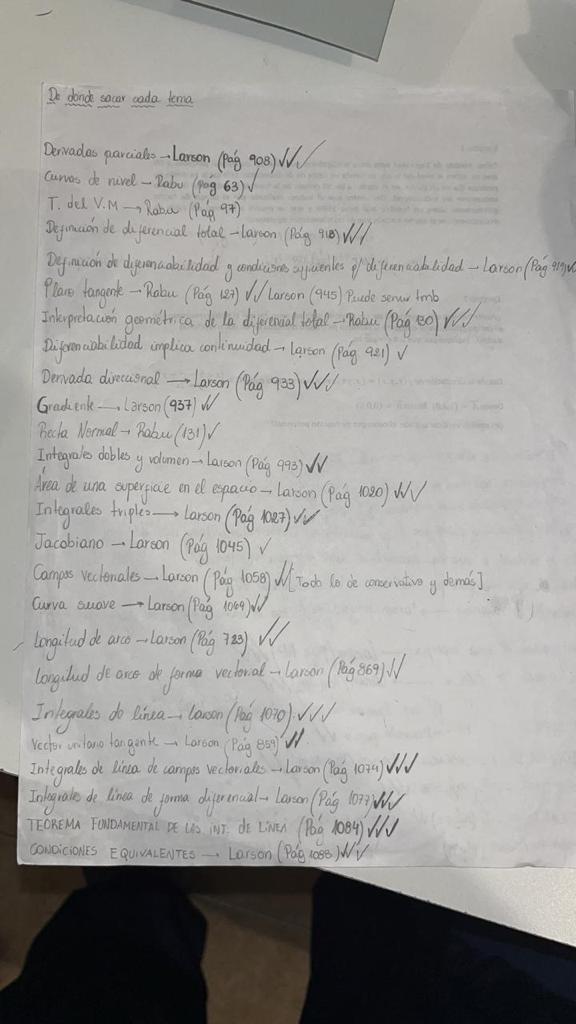 De donde sacar cada tema
Derivadas parciales → Larson (Pág 908) ✓✓✓
Curvas de nivel → Rabu (pág 63) ✓
T. del V.M → Rabu (Pág 97)
Definición de diferencial total → Larson (Pág 918) ✓✓✓
Definición de diferenciabilidad y condiciones suficientes p/ diferenciabilidad → Larson (Pag 919) ✓
Plano tangente → Rabu (Pág 127) ✓✓ Larson (945) Puede servir tmb
Interpretación geométrica de la diferencial total → Rabu (Pág 130) ✓✓✓
Diferenciabilidad implica continuidad → Larson (Pág 921) ✓
Derivada direccional → Larson (Pág 933) ✓✓✓
Gradiente → Larson (937) ✓✓
Recta Normal → Rabu (131) ✓
Integrales dobles y volumen → Larson (Pág 993) ✓✓
Área de una superficie en el espacio → Larson (Pág 1020) ✓✓✓
Integrales triples → Larson (Pág 1027) ✓✓
Jacobiano → Larson (Pág 1045) ✓
Campos vectoriales → Larson (Pág 1058) ✓✓ [Todo lo de conservativo y demás]
Curva suave → Larson (Pág 1069) ✓✓
Longitud de arco → Larson (Pág 723) ✓✓
Longitud de arco de forma vectorial → Larson (Pág 869) ✓✓
Integrales de línea → Larson (Pág 1070) ✓✓✓
Vector unitario tangente → Larson (Pág 859) ✓✓
Integrales de línea de campos vectoriales → Larson (Pág 1074) ✓✓✓
Integrales de línea de forma diferencial → Larson (Pág 1077) ✓✓✓
TEOREMA FUNDAMENTAL DE LAS INT. DE LÍNEA (Pág 1084) ✓✓✓
CONDICIONES EQUIVALENTES → Larson (Pág 1088) ✓✓✓